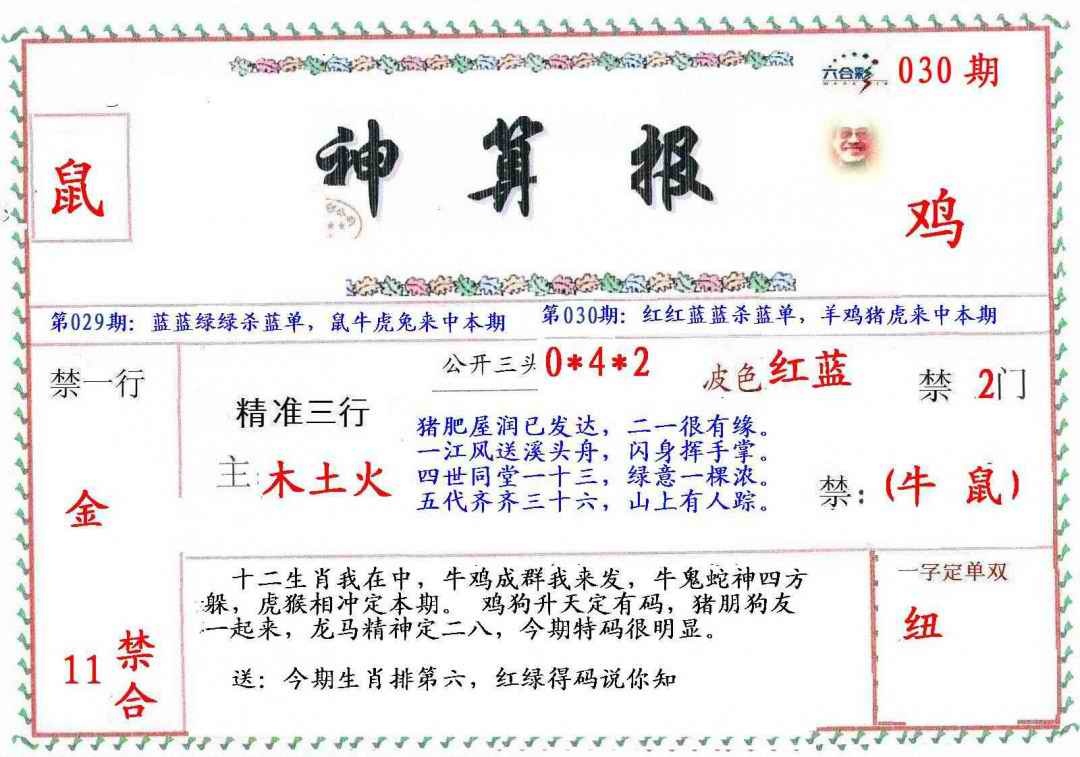 六合彩 030 期
鼠
神算报
鸡
第029期：蓝蓝绿绿杀蓝单，鼠牛虎兔来中本期
第030期：红红蓝蓝杀蓝单，羊鸡猪虎来中本期
禁一行
金
11 禁合
公开三头 0*4*2
波色 红蓝
禁 2门
精准三行
主：木土火
猪肥屋润已发达，二一很有缘。
一江风送溪头舟，闪身挥手掌。
四世同堂一十三，绿意一棵浓。
五代齐齐三十六，山上有人踪。
禁：(牛 鼠)
十二生肖我在中，牛鸡成群我来发，牛鬼蛇神四方
躲，虎猴相冲定本期。 鸡狗升天定有码，猪朋狗友
一起来，龙马精神定二八，今期特码很明显。
送：今期生肖排第六，红绿得码说你知
一字定单双
纽